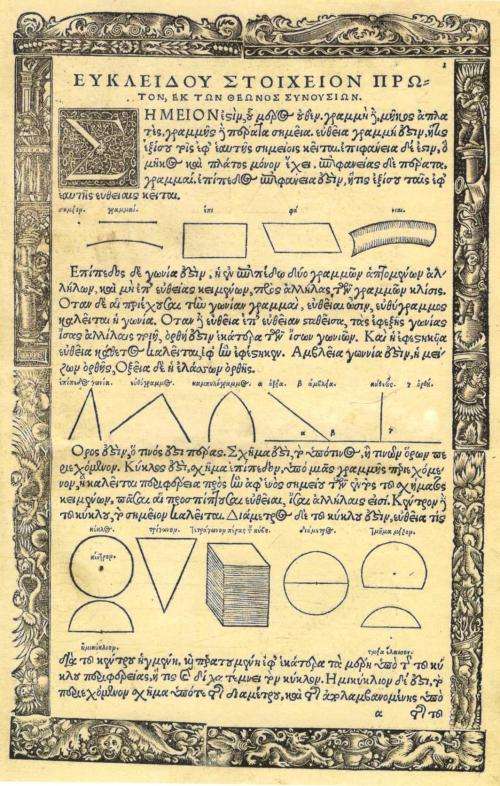 1
ΕΥΚΛΕΙΔΟΥ ΣΤΟΙΧΕΙΟΝ ΠΡΩ-
ΤΟΝ, ΕΚ ΤΩΝ ΘΕΩΝΟΣ ΣΥΝΟΥΣΙΩΝ.
ΣΗΜΕΙΟΝ ἐσὶν, οὗ μέρος οὐδέν. γραμμὴ δὲ, μῆκος ἀπλα
τὲς, γραμμῆς δὲ πέρατα σημεῖα. εὐθεῖα γραμμή ἐστιν, ἥτις
ἐξίσου τοῖς ἐφ' ἑαυτῆς σημείοις κεῖται. ἐπιφάνεια δέ ἐστιν, ὃ
μῆκος καὶ πλάτος μόνον ἔχει. ἐπιφανείας δὲ πέρατα,
γραμμαί. ἐπίπεδος ἐπιφάνειά ἐστιν, ἥτις ἐξίσου ταῖς ἐφ'
ἑαυτῆς εὐθείαις κεῖται.
σημεῖον. γραμμαί. ἐπι φά νειαι.
Ἐπίπεδος δὲ γωνία ἐστὶν, ἡ ἐν ἐπιπέδῳ δύο γραμμῶν ἁπτομένων ἀλ
λήλων, καὶ μὴ ἐπ' εὐθείας κειμένων, πρὸς ἀλλήλας τῶν γραμμῶν κλίσις.
Ὅταν δὲ αἱ περιέχουσαι τὴν γωνίαν γραμμαὶ, εὐθεῖαι ὦσιν, εὐθύγραμμος
καλεῖται ἡ γωνία. Ὅταν δὲ εὐθεῖα ἐπ' εὐθεῖαν σταθεῖσα, τὰς ἐφεξῆς γωνίας
ἴσας ἀλλήλαις ποιῇ, ὀρθή ἐστιν ἑκάτερα τῶν ἴσων γωνιῶν. Καὶ ἡ ἐφεστηκῦα
εὐθεῖα κάθετος καλεῖται, ἐφ' ἣν ἐφέστηκεν. Ἀμβλεῖα γωνία ἐστὶν, ἡ μεί
ζων ὀρθῆς, Ὀξεῖα δὲ ἡ ἐλάσσων ὀρθῆς.
ἐπίπεδος γωνία. εὐθύγραμμος καμπυλόγραμμος α ὀξεῖα. β ἀμβλεῖα. κάθετος. γ ὀρθή.
α β γ
Ὅρος ἐστὶν, ὅ τινός ἐστι πέρας. Σχῆμά ἐστι, τὸ ὑπό τινος, ἤ τινων ὅρων πε
ριεχόμενον. Κύκλος ἐστὶ, σχῆμα ἐπίπεδον, ὑπὸ μιᾶς γραμμῆς περιεχόμε
νον, ἣ καλεῖται περιφέρεια, πρὸς ἣν ἀφ' ἑνὸς σημείου τῶν ἐντὸς τοῦ σχήματος
κειμένων, πᾶσαι αἱ προσπίπτουσαι εὐθεῖαι, ἴσαι ἀλλήλαις εἰσί. Κέντρον δὲ
τοῦ κύκλου, τὸ σημεῖον καλεῖται. Διάμετρος δὲ τοῦ κύκλου ἐστὶν, εὐθεῖά τις
κύκλος. τρίγωνον. διάμετρος. τμῆμα μεῖζον.
κέντρον.
ἡμικύκλιον. τμῆμα ἔλασσον.
διὰ τοῦ κέντρου ἠγμένη, καὶ περατουμένη ἐφ' ἑκάτερα τὰ μέρη ὑπὸ τῆς τοῦ κύ
κλου περιφερείας, ἥτις καὶ δίχα τέμνει τὸν κύκλον. Ἡμικύκλιον δέ ἐστι, τὸ
περιεχόμενον σχῆμα ὑπό τε τῆς διαμέτρου, καὶ τῆς ἀπολαμβανομένης ὑπὸ
α τῆς τοῦ